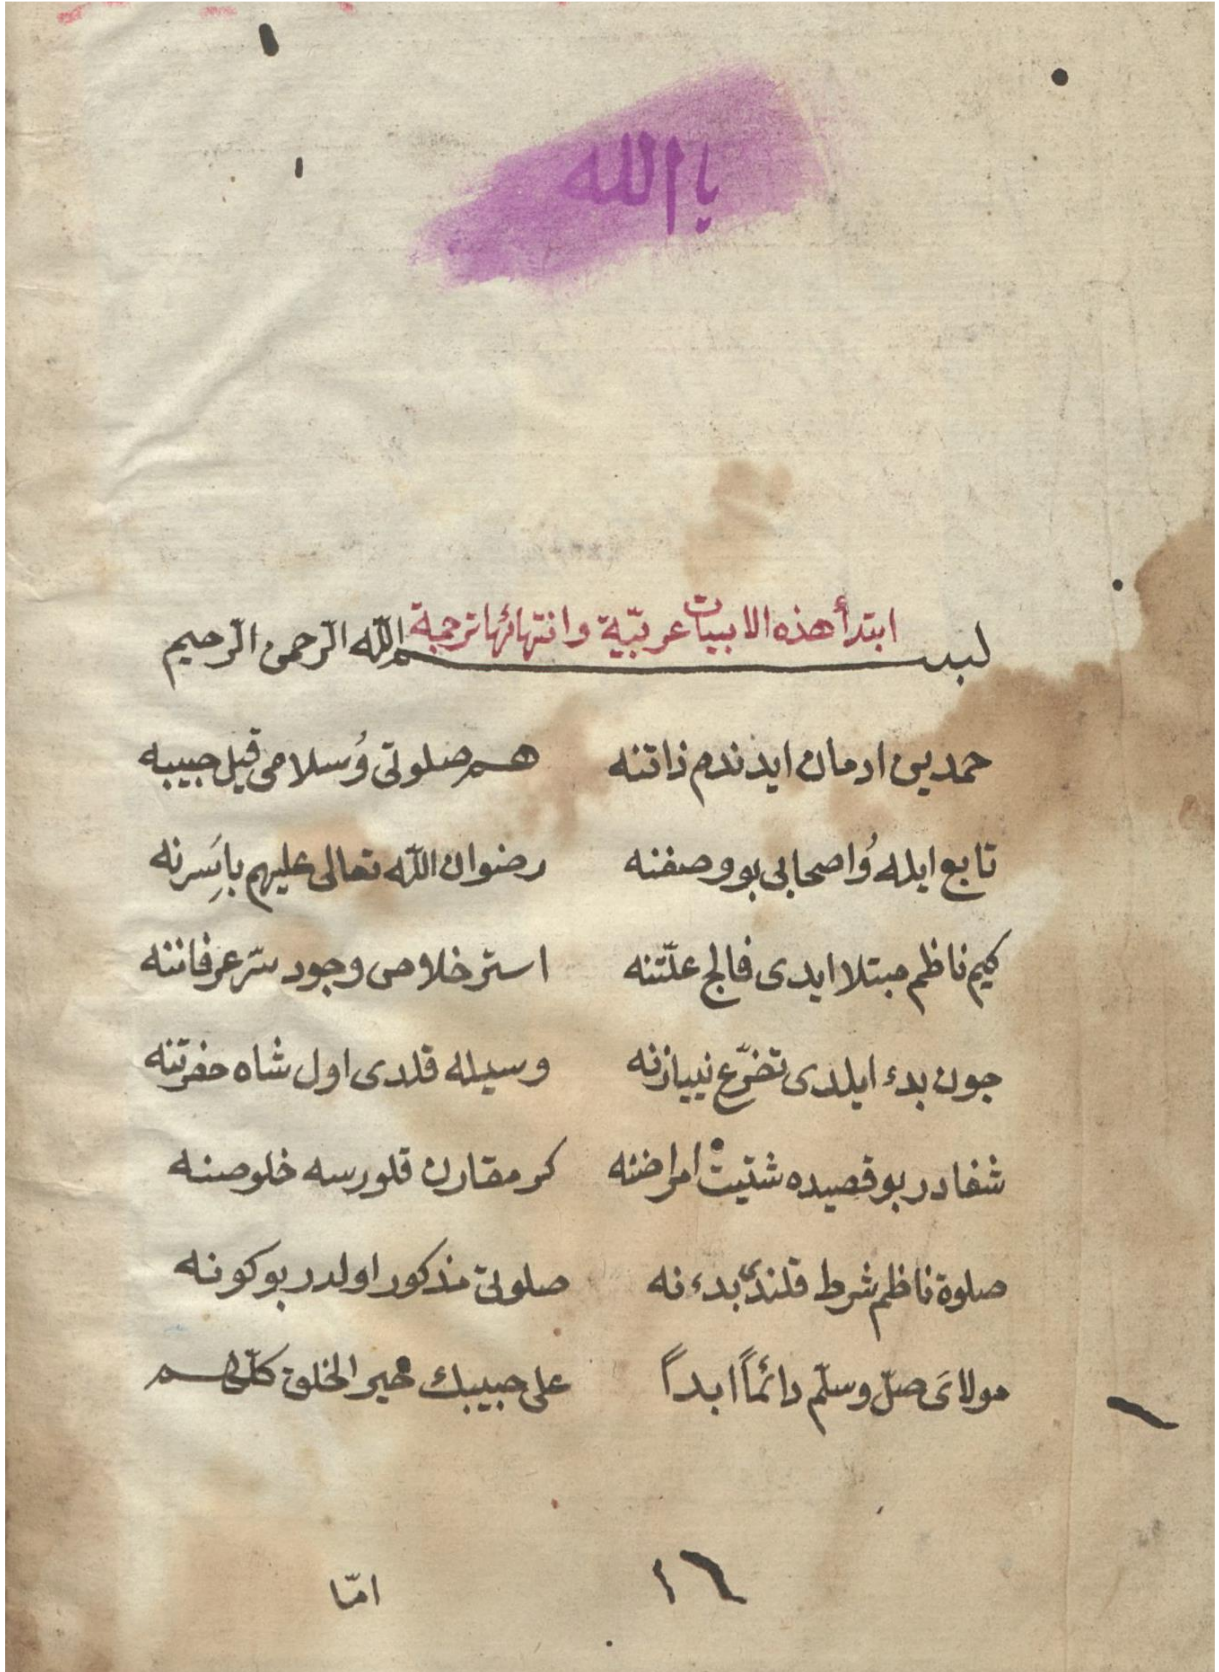 يا الله
ابتدأ هذه الابيات عربيّة وانتهائها ترجمة
بسم الله الرّحمن الرّحيم
حمديىن ادمان ايدندم ذاتنه هم صلوتى وُسلامى قيل حبيبه
تابع ايله وُاصحابى بو وصفنه رضوان الله تعالى عليهم باسَرنه
كيم ناظم مبتلا ايدى فالج علّتنه استر خلاص وجود سرّ عرفاننه
جون بدء ايلدى تضرّع نيازنه وسيله قلدى اول شاه حضرتنه
شفادر بو قصيده شتيت امراضنه كر مقارن قلورسه خلوصنه
صلوة ناظم شرط قلندى بدء نه صلوتى مذكور اولدر بوكونه
مولاىَ صلّ وسلّم دائماً ابداً على حبيبك خير الخلق كلّهم
امّا